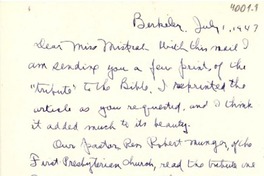 4001.9
Berkeley, July 1, 1947
Dear Miss Mistral: With this mail I
am sending you a few prints of the
"tribute" to the Bible. I reprinted the
article as you requested, and I think
it added much to its beauty.
Our pastor Rev. Robert Munger, of the
First Presbyterian Church, read the tribute one